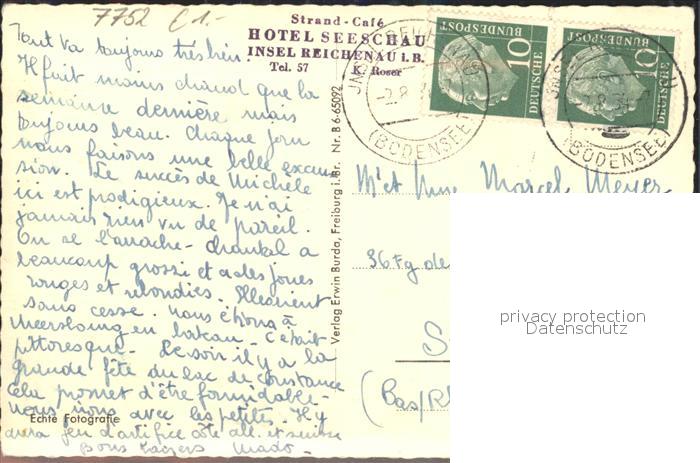 7752 € 1.-
Strand-Café
HOTEL SEESCHAU
INSEL REICHENAU i. B.
Tel. 57 K. Roser
Tout va toujours très bien.
Il fait moins chaud que la
semaine dernière mais
toujours beau. Chaque jour
nous faisons une belle excur
sion. Le succès de Michèle
ici est prodigieux. Je n'ai
jamais rien vu de pareil.
On se l'arrache - Chantal a
beaucoup grossi et a des joues
rouges et rebondies. Elles rient
sans cesse. Nous étions à
Meersbourg en bateau. C'était
pittoresque. Ce soir il y a la
grande fête du lac de Constance
cela promet d'être formidable -
nous irons avec les petites. Il y
aura feu d'artifice côté all. et suisse
Bons baisers Mado -
Echte Fotografie
Verlag Erwin Burda, Freiburg i. Br. Nr. B 6-65092
10
DEUTSCHE
BUNDESPOST
10
DEUTSCHE
BUNDESPOST
(BODENSEE)
(BODENSEE)
M' et Mme Marcel Meyer
36 Fg de
S
(Bas/R
privacy protection
Datenschutz